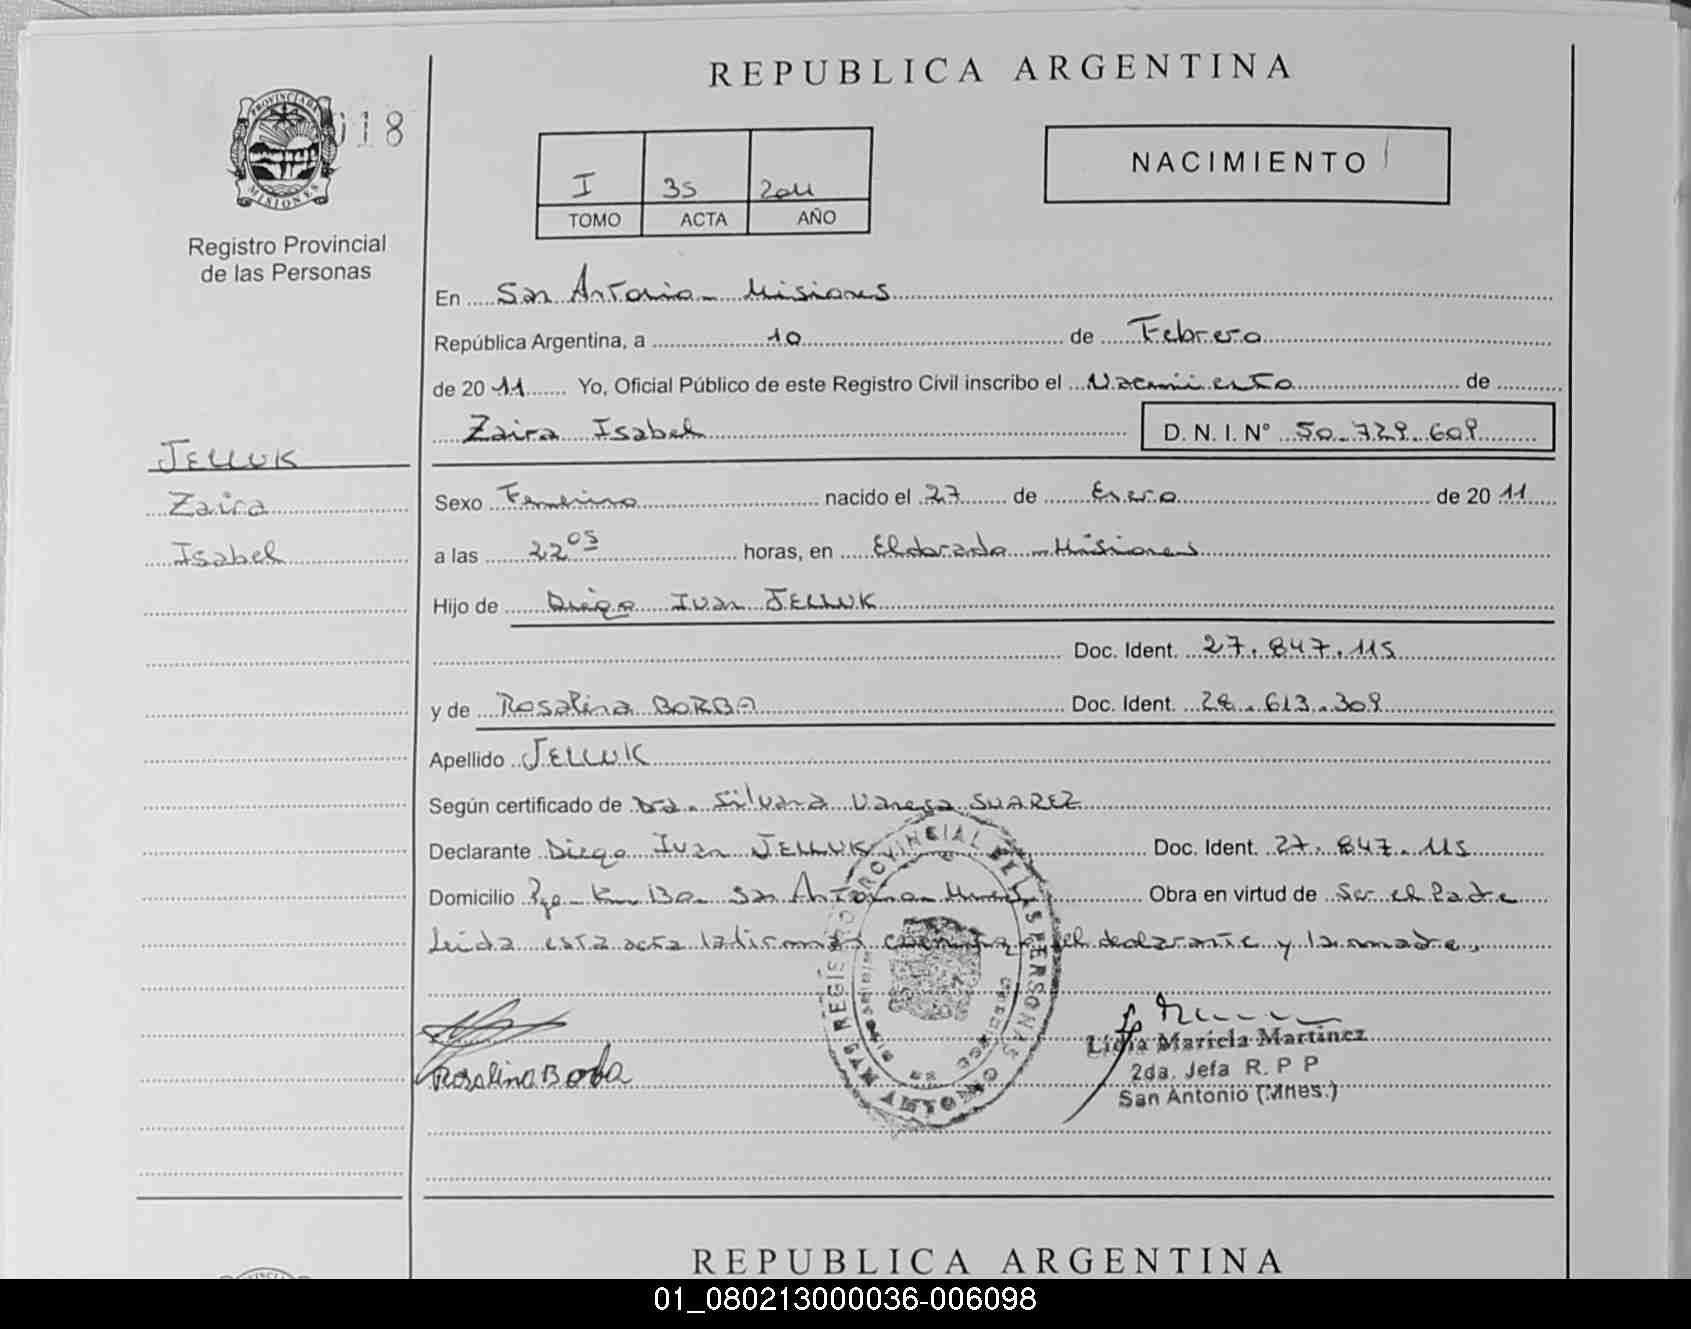 REPUBLICA ARGENTINA
PROVINCIA DE MISIONES
018
Registro Provincial
de las Personas
I 35 2011
TOMO ACTA AÑO
NACIMIENTO
En San Antonio - Misiones
República Argentina, a 10 de Febrero
de 20 11 Yo, Oficial Público de este Registro Civil inscribo el Nacimiento de
Zaira Isabel D. N. I. N° 50.729.609
JELLUK
Zaira
Isabel
Sexo Femenino nacido el 27 de Enero de 20 11
a las 22 05 horas, en Eldorado - Misiones
Hijo de Diego Ivan JELLUK
Doc. Ident. 27.847.115
y de Rosalina BORBA Doc. Ident. 28.613.309
Apellido JELLUK
Según certificado de Dra. Silvana Vanesa SUAREZ
Declarante Diego Ivan JELLUK Doc. Ident. 27.847.115
Domicilio San Antonio - Obra en virtud de Ser el Padre
Leída esta acta la firman conmigo el declarante y la madre.
REGISTRO PROVINCIAL DE LAS PERSONAS
Rosalina Borba
Lidia Mariela Martinez
2da. Jefa R. P P
San Antonio (Mnes.)
REPUBLICA ARGENTINA
01_080213000036-006098